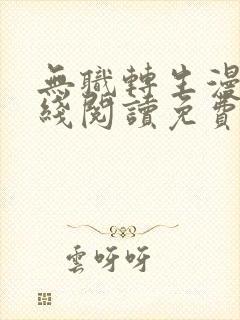 無職轉生漫
綫閱讀免費
雲呀呀